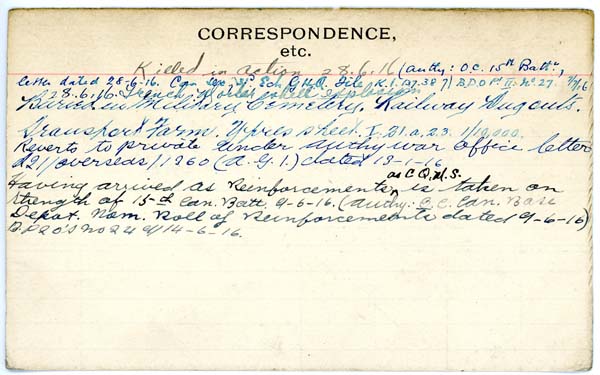 CORRESPONDENCE,
etc.
Killed in action 28.6.16 (authy: O.C. 15th Battn,
letter dated 28-6-16 Can. Sec. G.H.Q. File K.1.
28.6.16 Trench Mortar
Buried in Military Cemetery, Railway Dugouts.
Transport Farm. Ypres sheet. I. 21.a.2.3. 1/10,000.
Reverts to private under authy war Office letter
121/overseas/1260 (A.G.1.) dated 13-1-16
as C.Q.M.S.
Having arrived as Reinforcements is taken on
strength of 15th Can. Batt. 9-6-16. (Authy: O.C. Can. Base
Depot. Nom. Roll of Reinforcements dated 9-6-16)
14-6-16.